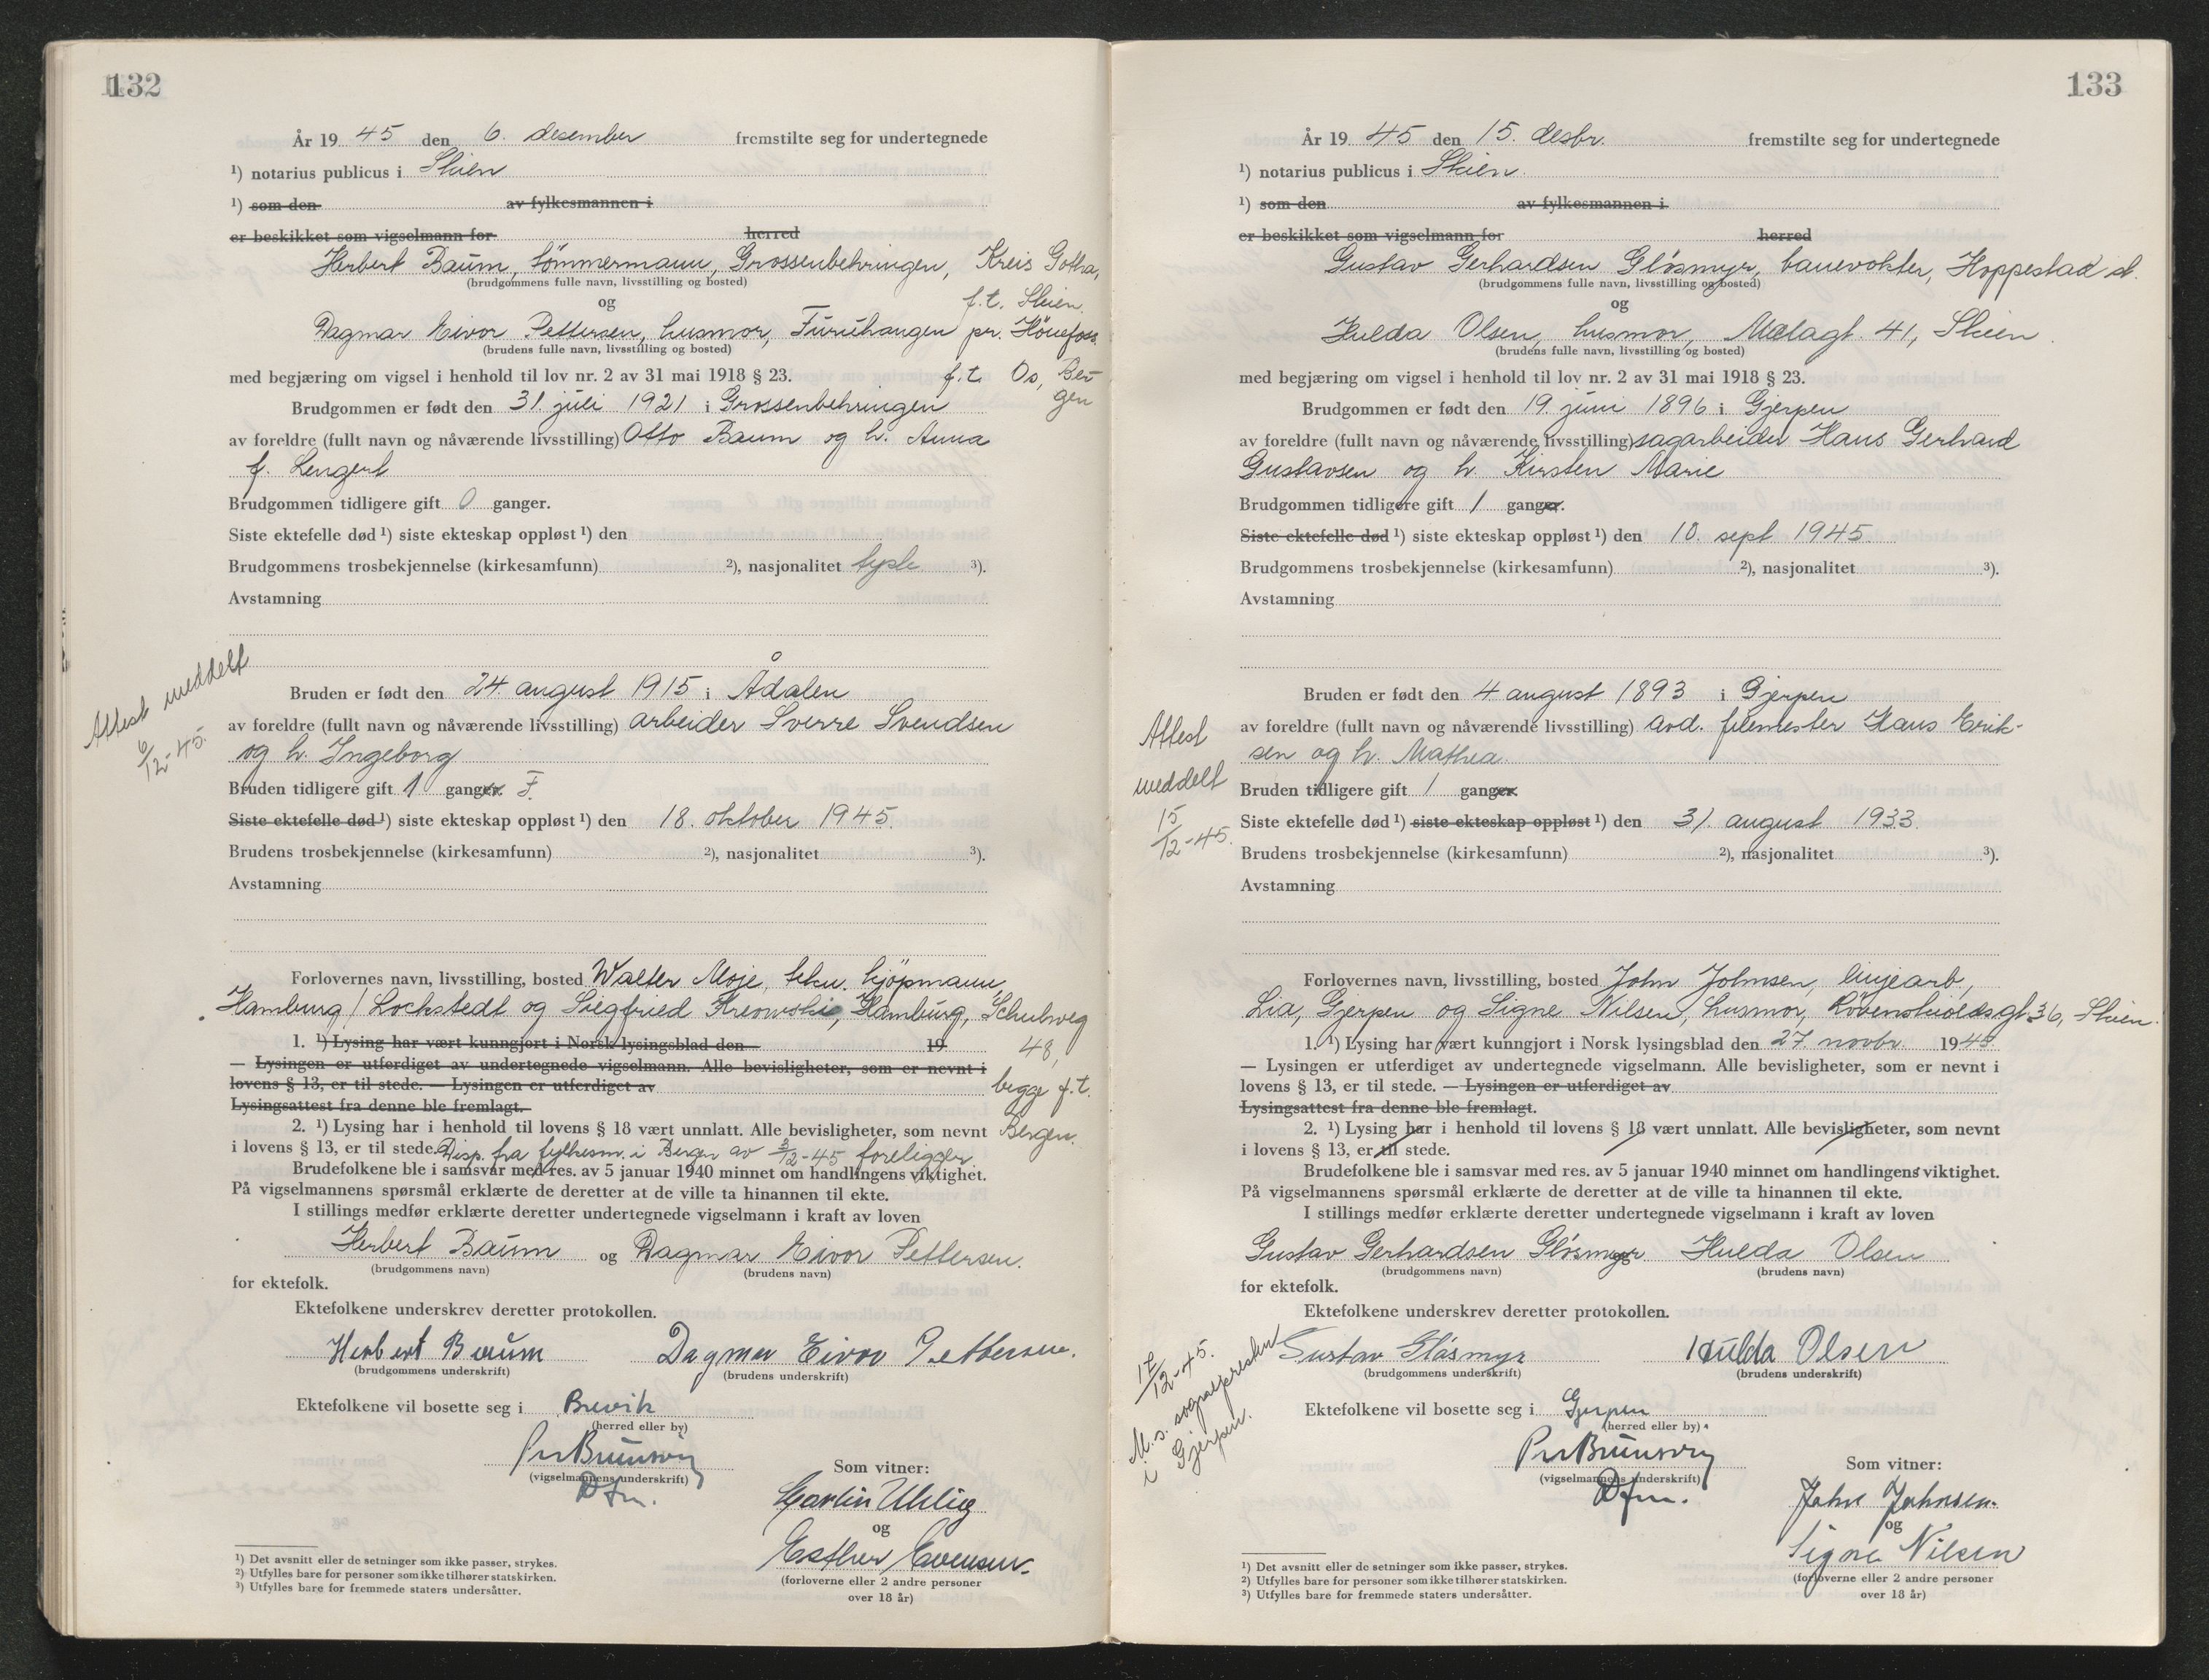 132
År 19 45 den 6. desember fremstilte seg for undertegnede
¹) notarius publicus i Skien
¹) som den av fylkesmannen i
er beskikket som vigselmann for herred
Herbert Baum, tömmermann, Grossenbehringen, Kreis Gotha,
(brudgommens fulle navn, livsstilling og bosted)
f.t. Skien.
og
Dagmar Eivor Pettersen, husmor, Furuhaugen pr. Hönefoss.
(brudens fulle navn, livsstilling og bosted)
med begjæring om vigsel i henhold til lov nr. 2 av 31 mai 1918 § 23. f.t. Os, Ber-
gen
Brudgommen er født den 31. juli 1921 i Grossenbehringen
av foreldre (fullt navn og nåværende livsstilling) Otto Baum og h. Anna
f. Lengert
Brudgommen tidligere gift 0 ganger.
Siste ektefelle død ¹) siste ekteskap oppløst ¹) den
Brudgommens trosbekjennelse (kirkesamfunn) ²), nasjonalitet tysk ³).
Avstamning
Attest meddelt
6/12-45.
Bruden er født den 24 august 1915 i Ådalen
av foreldre (fullt navn og nåværende livsstilling) arbeider Sverre Svendsen
og h. Ingeborg
Bruden tidligere gift 1 ganger. F.
Siste ektefelle død ¹) siste ekteskap oppløst ¹) den 18. oktober 1945.
Brudens trosbekjennelse (kirkesamfunn) ²), nasjonalitet ³).
Avstamning
Forlovernes navn, livsstilling, bosted Walter Moje, tekn. kjöpmann,
Hamburg/Lockstedt og Siegfried, Hamburg, Schulweg
48,
begge f.t.
Bergen.
1. ¹) Lysing har vært kunngjort i Norsk lysingsblad den 19
— Lysingen er utferdiget av undertegnede vigselmann. Alle bevisligheter, som er nevnt i
lovens § 13, er til stede. — Lysingen er utferdiget av
Lysingsattest fra denne ble fremlagt.
2. ¹) Lysing har i henhold til lovens § 18 vært unnlatt. Alle bevisligheter, som nevnt
i lovens § 13, er til stede. Disp. fra fylkesm. i Bergen av 3/12-45 foreligger.
Brudefolkene ble i samsvar med res. av 5 januar 1940 minnet om handlingens viktighet.
På vigselmannens spørsmål erklærte de deretter at de ville ta hinannen til ekte.
I stillings medfør erklærte deretter undertegnede vigselmann i kraft av loven
Herbert Baum og Dagmar Eivor Pettersen.
(brudgommens navn) (brudens navn)
for ektefolk.
Ektefolkene underskrev deretter protokollen.
Herbert Baum Dagmar Eivor Pettersen.
(brudgommens underskrift) (brudens underskrift)
Ektefolkene vil bosette seg i Brevik
(herred eller by)
(vigselmannens underskrift)
Som vitner:
Uhlig
og
Esther Evensen.
(forloverne eller 2 andre personer
over 18 år)
¹) Det avsnitt eller de setninger som ikke passer, strykes.
²) Utfylles bare for personer som ikke tilhører statskirken.
³) Utfylles bare for fremmede staters undersåtter.
133
År 19 45 den 15. desbr. fremstilte seg for undertegnede
¹) notarius publicus i Skien.
¹) som den av fylkesmannen i
er beskikket som vigselmann for herred
Gustav Gerhardsen Glósmyr, banevokter, Hoppestad st.
(brudgommens fulle navn, livsstilling og bosted)
og
Hulda Olsen, husmor, Mælagt. 41, Skien.
(brudens fulle navn, livsstilling og bosted)
med begjæring om vigsel i henhold til lov nr. 2 av 31 mai 1918 § 23.
Brudgommen er født den 19. juni 1896 i Gjerpen
av foreldre (fullt navn og nåværende livsstilling) sagarbeider Hans Gerhard
Gustavsen og h. Kirsten Marie
Brudgommen tidligere gift 1 ganger.
Siste ektefelle død ¹) siste ekteskap oppløst ¹) den 10. sept 1945.
Brudgommens trosbekjennelse (kirkesamfunn) ²), nasjonalitet ³).
Avstamning
Attest
meddelt
15/12-45.
Bruden er født den 4 august 1893 i Gjerpen
av foreldre (fullt navn og nåværende livsstilling) avd. filemester Hans Erik-
sen og h. Mathea.
Bruden tidligere gift 1 ganger.
Siste ektefelle død ¹) siste ekteskap oppløst ¹) den 31. august 1933.
Brudens trosbekjennelse (kirkesamfunn) ²), nasjonalitet ³).
Avstamning
Forlovernes navn, livsstilling, bosted John Johnsen, linjearb.,
Lia, Gjerpen og Signe Nilsen, husmor, Rövenskioldsgt 36, Skien.
1. ¹) Lysing har vært kunngjort i Norsk lysingsblad den 27. novbr. 1945.
— Lysingen er utferdiget av undertegnede vigselmann. Alle bevisligheter, som er nevnt i
lovens § 13, er til stede. — Lysingen er utferdiget av
Lysingsattest fra denne ble fremlagt.
2. ¹) Lysing har i henhold til lovens § 18 vært unnlatt. Alle bevisligheter, som nevnt
i lovens § 13, er til stede.
Brudefolkene ble i samsvar med res. av 5 januar 1940 minnet om handlingens viktighet.
På vigselmannens spørsmål erklærte de deretter at de ville ta hinannen til ekte.
I stillings medfør erklærte deretter undertegnede vigselmann i kraft av loven
Gustav Gerhardsen Glósmyr og Hulda Olsen
(brudgommens navn) (brudens navn)
for ektefolk.
Ektefolkene underskrev deretter protokollen.
Gustav Glósmyr Hulda Olsen
(brudgommens underskrift) (brudens underskrift)
17/12-45.
M.s. sognepresten
i Gjerpen.
Ektefolkene vil bosette seg i Gjerpen
(herred eller by)
(vigselmannens underskrift)
Som vitner:
John Johnsen.
og
Signe Nilsen
(forloverne eller 2 andre personer
over 18 år)
¹) Det avsnitt eller de setninger som ikke passer, strykes.
²) Utfylles bare for personer som ikke tilhører statskirken.
³) Utfylles bare for fremmede staters undersåtter.